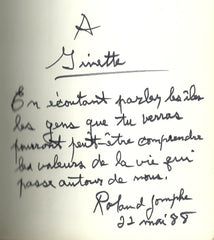 A
Ginette
En écoutant parler les îles
les gens que tu verras
pourront peut-être comprendre
les valeurs de la vie qui
passe autour de nous.
Roland Jomphe
22 mai 88